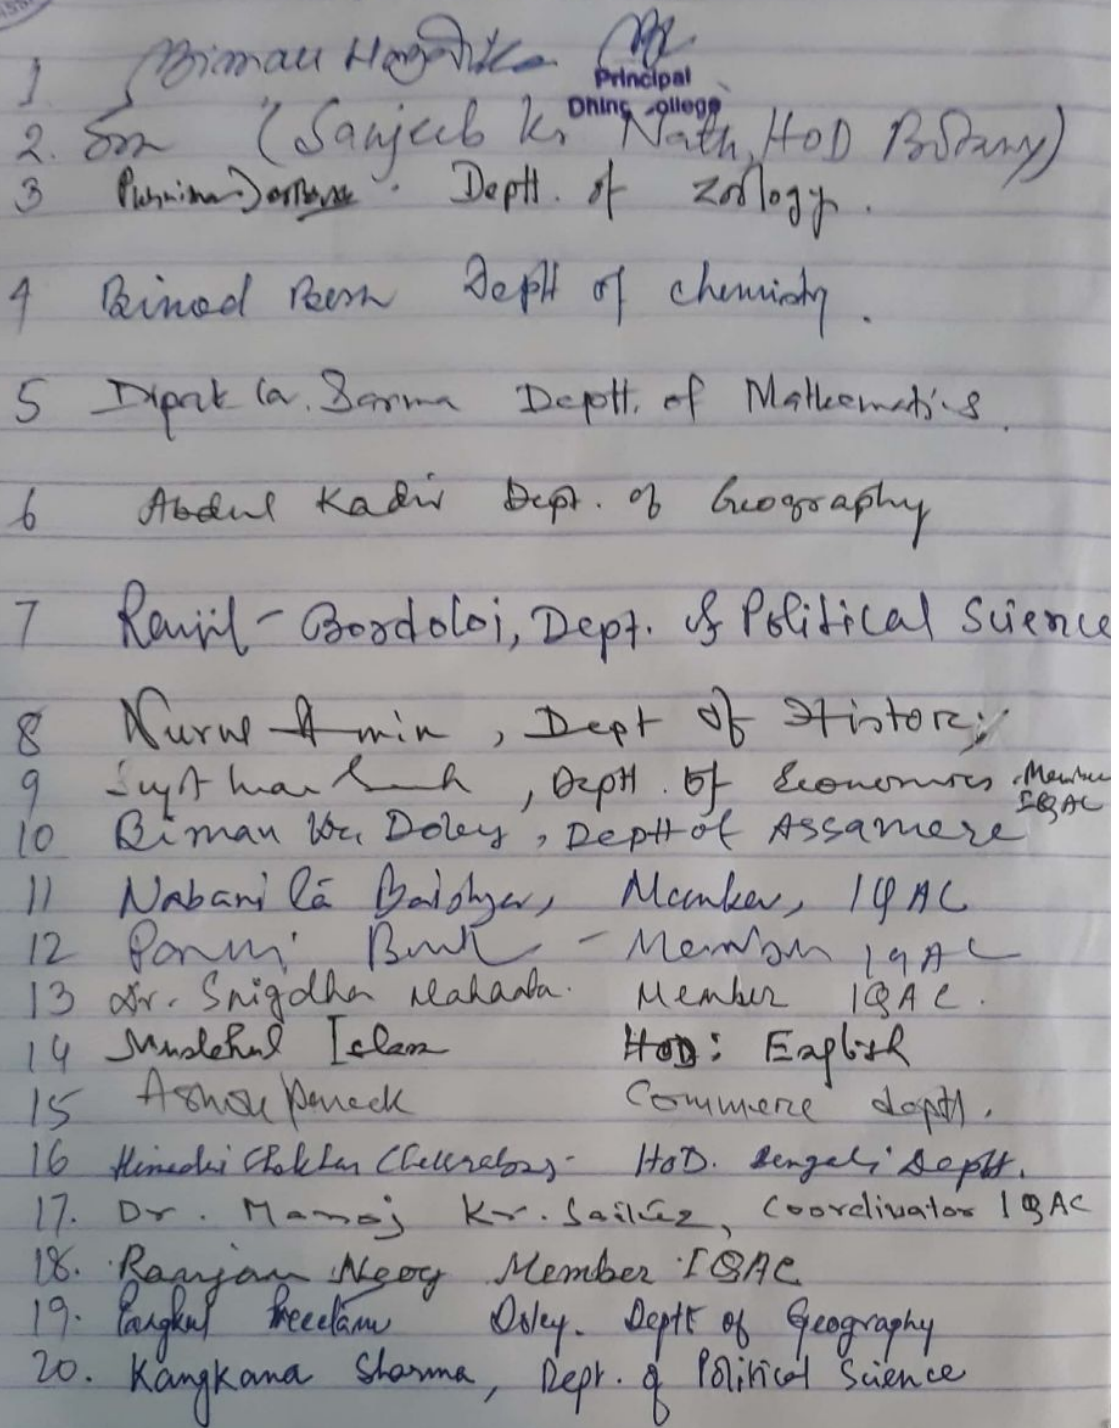 1 Biman Hazarika
Principal
Dhing College
2. (Sanjeeb Kr Nath, HOD Botany)
3 Purnima Deptt. of Zoology.
4 Binod Deptt of chemistry.
5 Dipak Kr. Sarma Deptt. of Mathematics.
6 Abdul Kadir Dept. of Geography
7 Ranjit Bordoloi, Dept. of Political Science
8 Nurul Amin, Dept of History
9 , Deptt. of Economics. Member
IQAC
10 Biman Kr. Doley, Deptt of Assamese
11 Nabanita Member, IQAC
12 - Member IQAC
13 Dr. Snigdha Mahanta. Member IQAC.
14 Muslehul Islam HOD: English
15 Commerce deptt.
16 HoD. Bengali Deptt.
17. Dr. Manoj Kr. Saikia, Coordinator IQAC
18. Ranjan Neog Member IQAC
19. Doley. Deptt of Geography
20. Kangkana Sharma, Dept. of Political Science